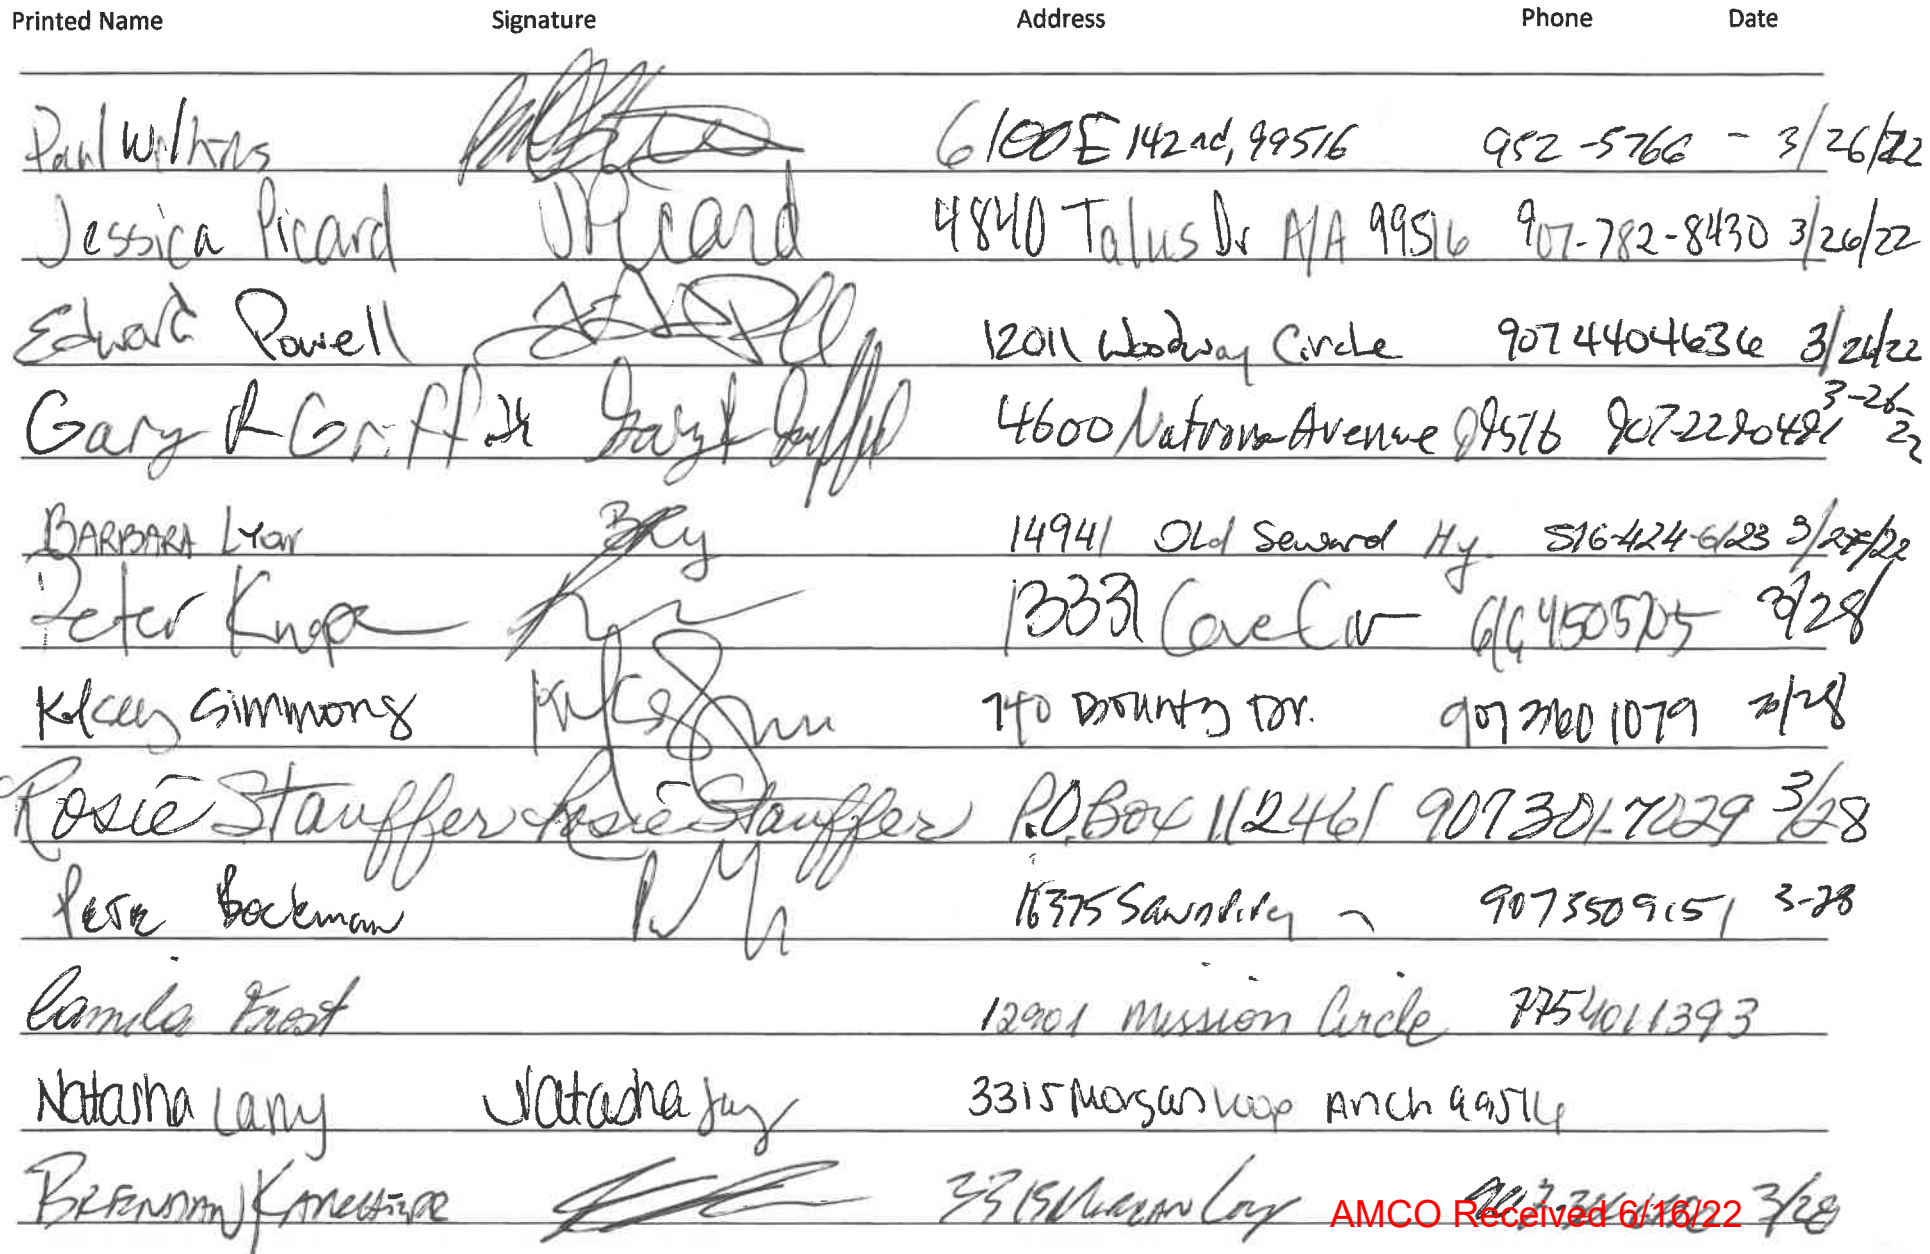 Printed Name Signature Address Phone Date
Paul Wilkins 6100 E 142nd, 99516 952-5766 - 3/26/22
Jessica Picard JPicard 4840 Talus Dr A/A 99516 907-782-8430 3/26/22
Edward Powell 12011 Woodway Circle 907 4404636 3/26/22
Gary R Griffith 4600 Natrona Avenue 99516 907-2290481 3-26-22
BARBARA Lyon 14941 Old Seward Hy. 516-424-6123
Peter Knape 13331 Cove Cir 3/28
Kelcey Simmons 740 Bounty Dr. 907 360 1079 3/28
Rosie Stauffer Rosie Stauffer P.O. Box 112461 907 301-7029 3/28
Pete Bockman 907 350 9151 3-28
Camila Frost 12901 Mission Circle 775 4011393
Natasha Lany Natasha 3315 Morgan Loop Anch 99516
BRENDAN 3315 Morgan Loop 3/28
AMCO Received 6/16/22